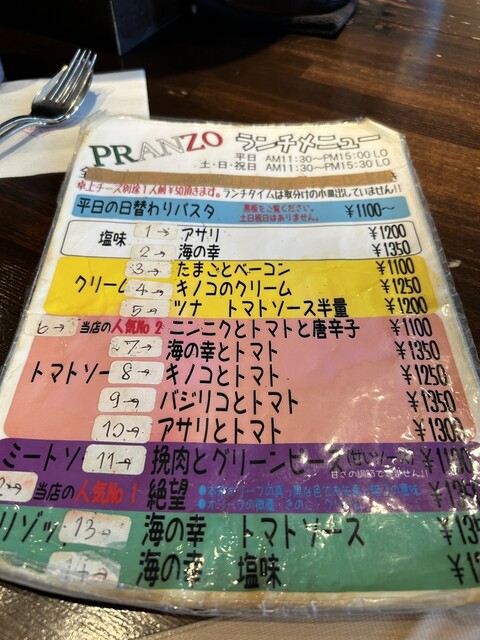 PRANZO ランチメニュー
平日 AM11:30~PM15:00 LO
土・日・祝日 AM11:30~PM15:30 LO
卓上チーズ別途1人前¥50頂きます。ランチタイムは取分けの小皿出していません!!
平日の日替わりパスタ 黒板をご覧ください。 土日祝日はありません。 ¥1100~
塩味 1→ アサリ ¥1200
2→ 海の幸 ¥1350
3→ たまごとベーコン ¥1100
クリーム 4→ キノコのクリーム ¥1250
5→ ツナ トマトソース半量 ¥1200
6→ 当店の人気No 2 ニンニクとトマトと唐辛子 ¥1100
7→ 海の幸とトマト ¥1350
トマトソー 8→ キノコとトマト ¥1250
9→ バジリコとトマト ¥1350
10→ アサリとトマト ¥1300
ミートソ 11→ 挽肉とグリーンピース
当店の人気No 1 絶望
リゾッ 13→ 海の幸 トマトソース
14→ 海の幸 塩味